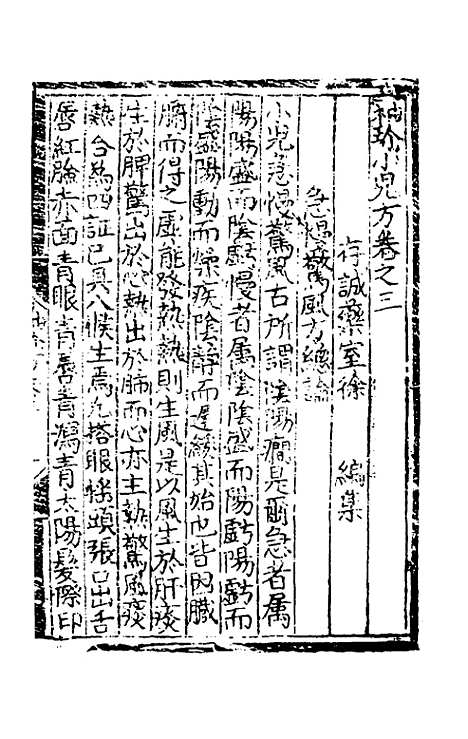 袖珍小兒方卷之三
存誠藥室徐　編集
急慢驚風方總論
小兒急慢驚風古所謂陰陽癇是爾急者属
陽陽盛而陰虧慢者属陰陰盛而陽虧陽虧而
陰盛陽動而燥疾陰靜而遲緩其始也皆因臟
腑而得之虛能發熱熱則生風是以風生於肝痰
生於脾驚出於心熱出於肺而心亦主熱驚風痰
熱合為四証巳具八候生焉凢搭眼揺頭張口出舌
唇紅臉赤面青眼青唇青瀉青太陽髮際印